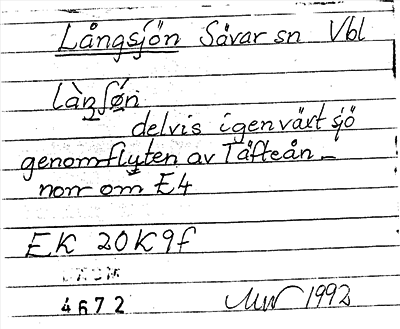 Långsjön Sävar sn Vbl
làŋʃø̀n
delvis igenväxt sjö
genomfluten av Täfteån -
norr om E4
EK 20K9f
4672
1992